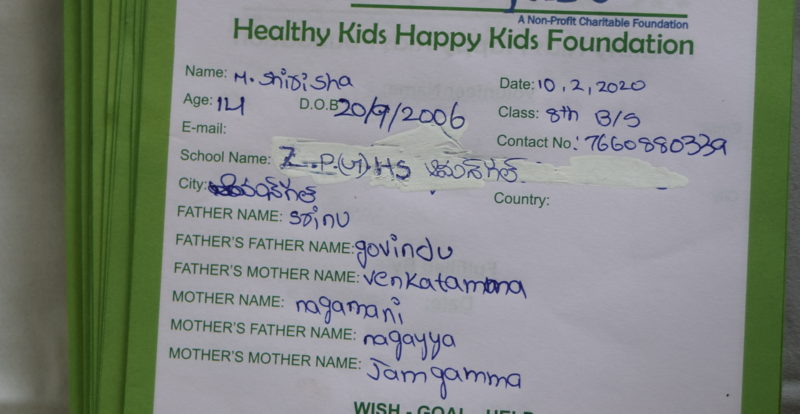 A Non-Profit Charitable Foundation
Healthy Kids Happy Kids Foundation
Name: M. Shirisha
Date: 10.2,2020
Age: 14 D.O.B 20/9/2006
Class: 8th B/S
E-mail:
Contact No.: 7660880339
School Name: Z.P.(U).HS
City:
Country:
FATHER NAME: Srinu
FATHER'S FATHER NAME: govindu
FATHER'S MOTHER NAME: Venkatamma
MOTHER NAME: nagamani
MOTHER'S FATHER NAME: nagayya
MOTHER'S MOTHER NAME: Jamgamma
WISH - GOAL - HELP